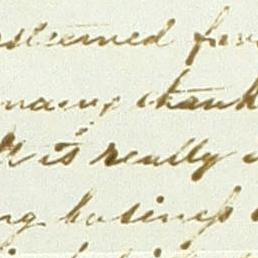 esteemed fav
many thank
it is really
ng business